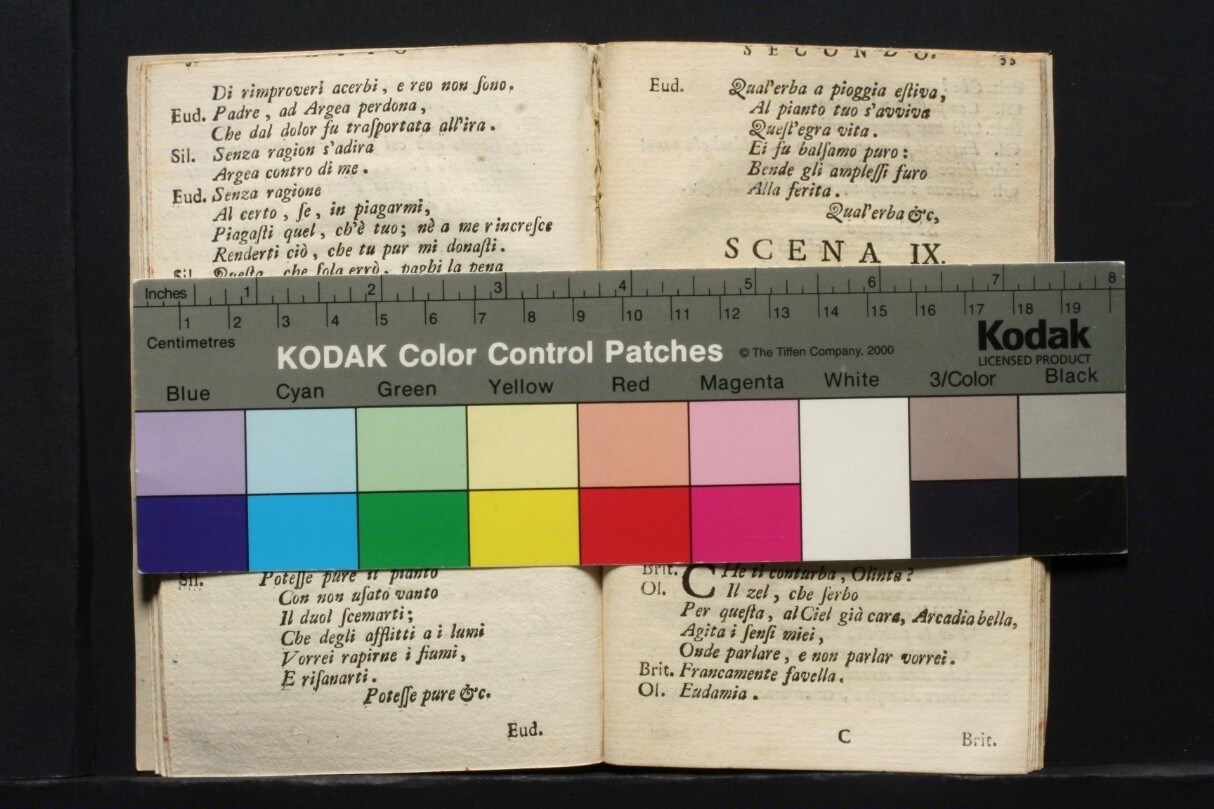 Di rimproveri acerbi, e reo non ſono.
Eud. Padre, ad Argea perdona,
Che dal dolor fu traſportata all'ira.
Sil. Senza ragion s'adira
Argea contro di me.
Eud. Senza ragione
Al certo, ſe, in piagarmi,
Piagaſti quel, ch'è tuo; nè a me rincreſce
Renderti ciò, che tu pur mi donaſti.
Sil. Queſta, che ſola errò, paghi la pena
Sil. Poteſſe pure il pianto
Con non uſato vanto
Il duol ſcemarti;
Che degli afflitti a i lumi
Vorrei rapirne i fiumi,
E riſanarti.
Poteſſe pure &c.
Eud.
SECONDO.
Eud. Qual'erba a pioggia eſtiva,
Al pianto tuo s'avviva
Queſt'egra vita.
Ei fu balſamo puro:
Bende gli ampleſſi furo
Alla ferita.
Qual'erba &c,
SCENA IX.
Inches 1 2 3 4 5 6 7 8
1 2 3 4 5 6 7 8 9 10 11 12 13 14 15 16 17 18 19
Centimetres
KODAK Color Control Patches © The Tiffen Company, 2000
Kodak
LICENSED PRODUCT
Blue Cyan Green Yellow Red Magenta White 3/Color Black
Brit. CHe ti conturba, Olinta?
Ol. Il zel, che ſerbo
Per queſta, al Ciel già cara, Arcadia bella,
Agita i ſenſi miei,
Onde parlare, e non parlar vorrei.
Brit. Francamente favella.
Ol. Eudamia.
C
Brit.